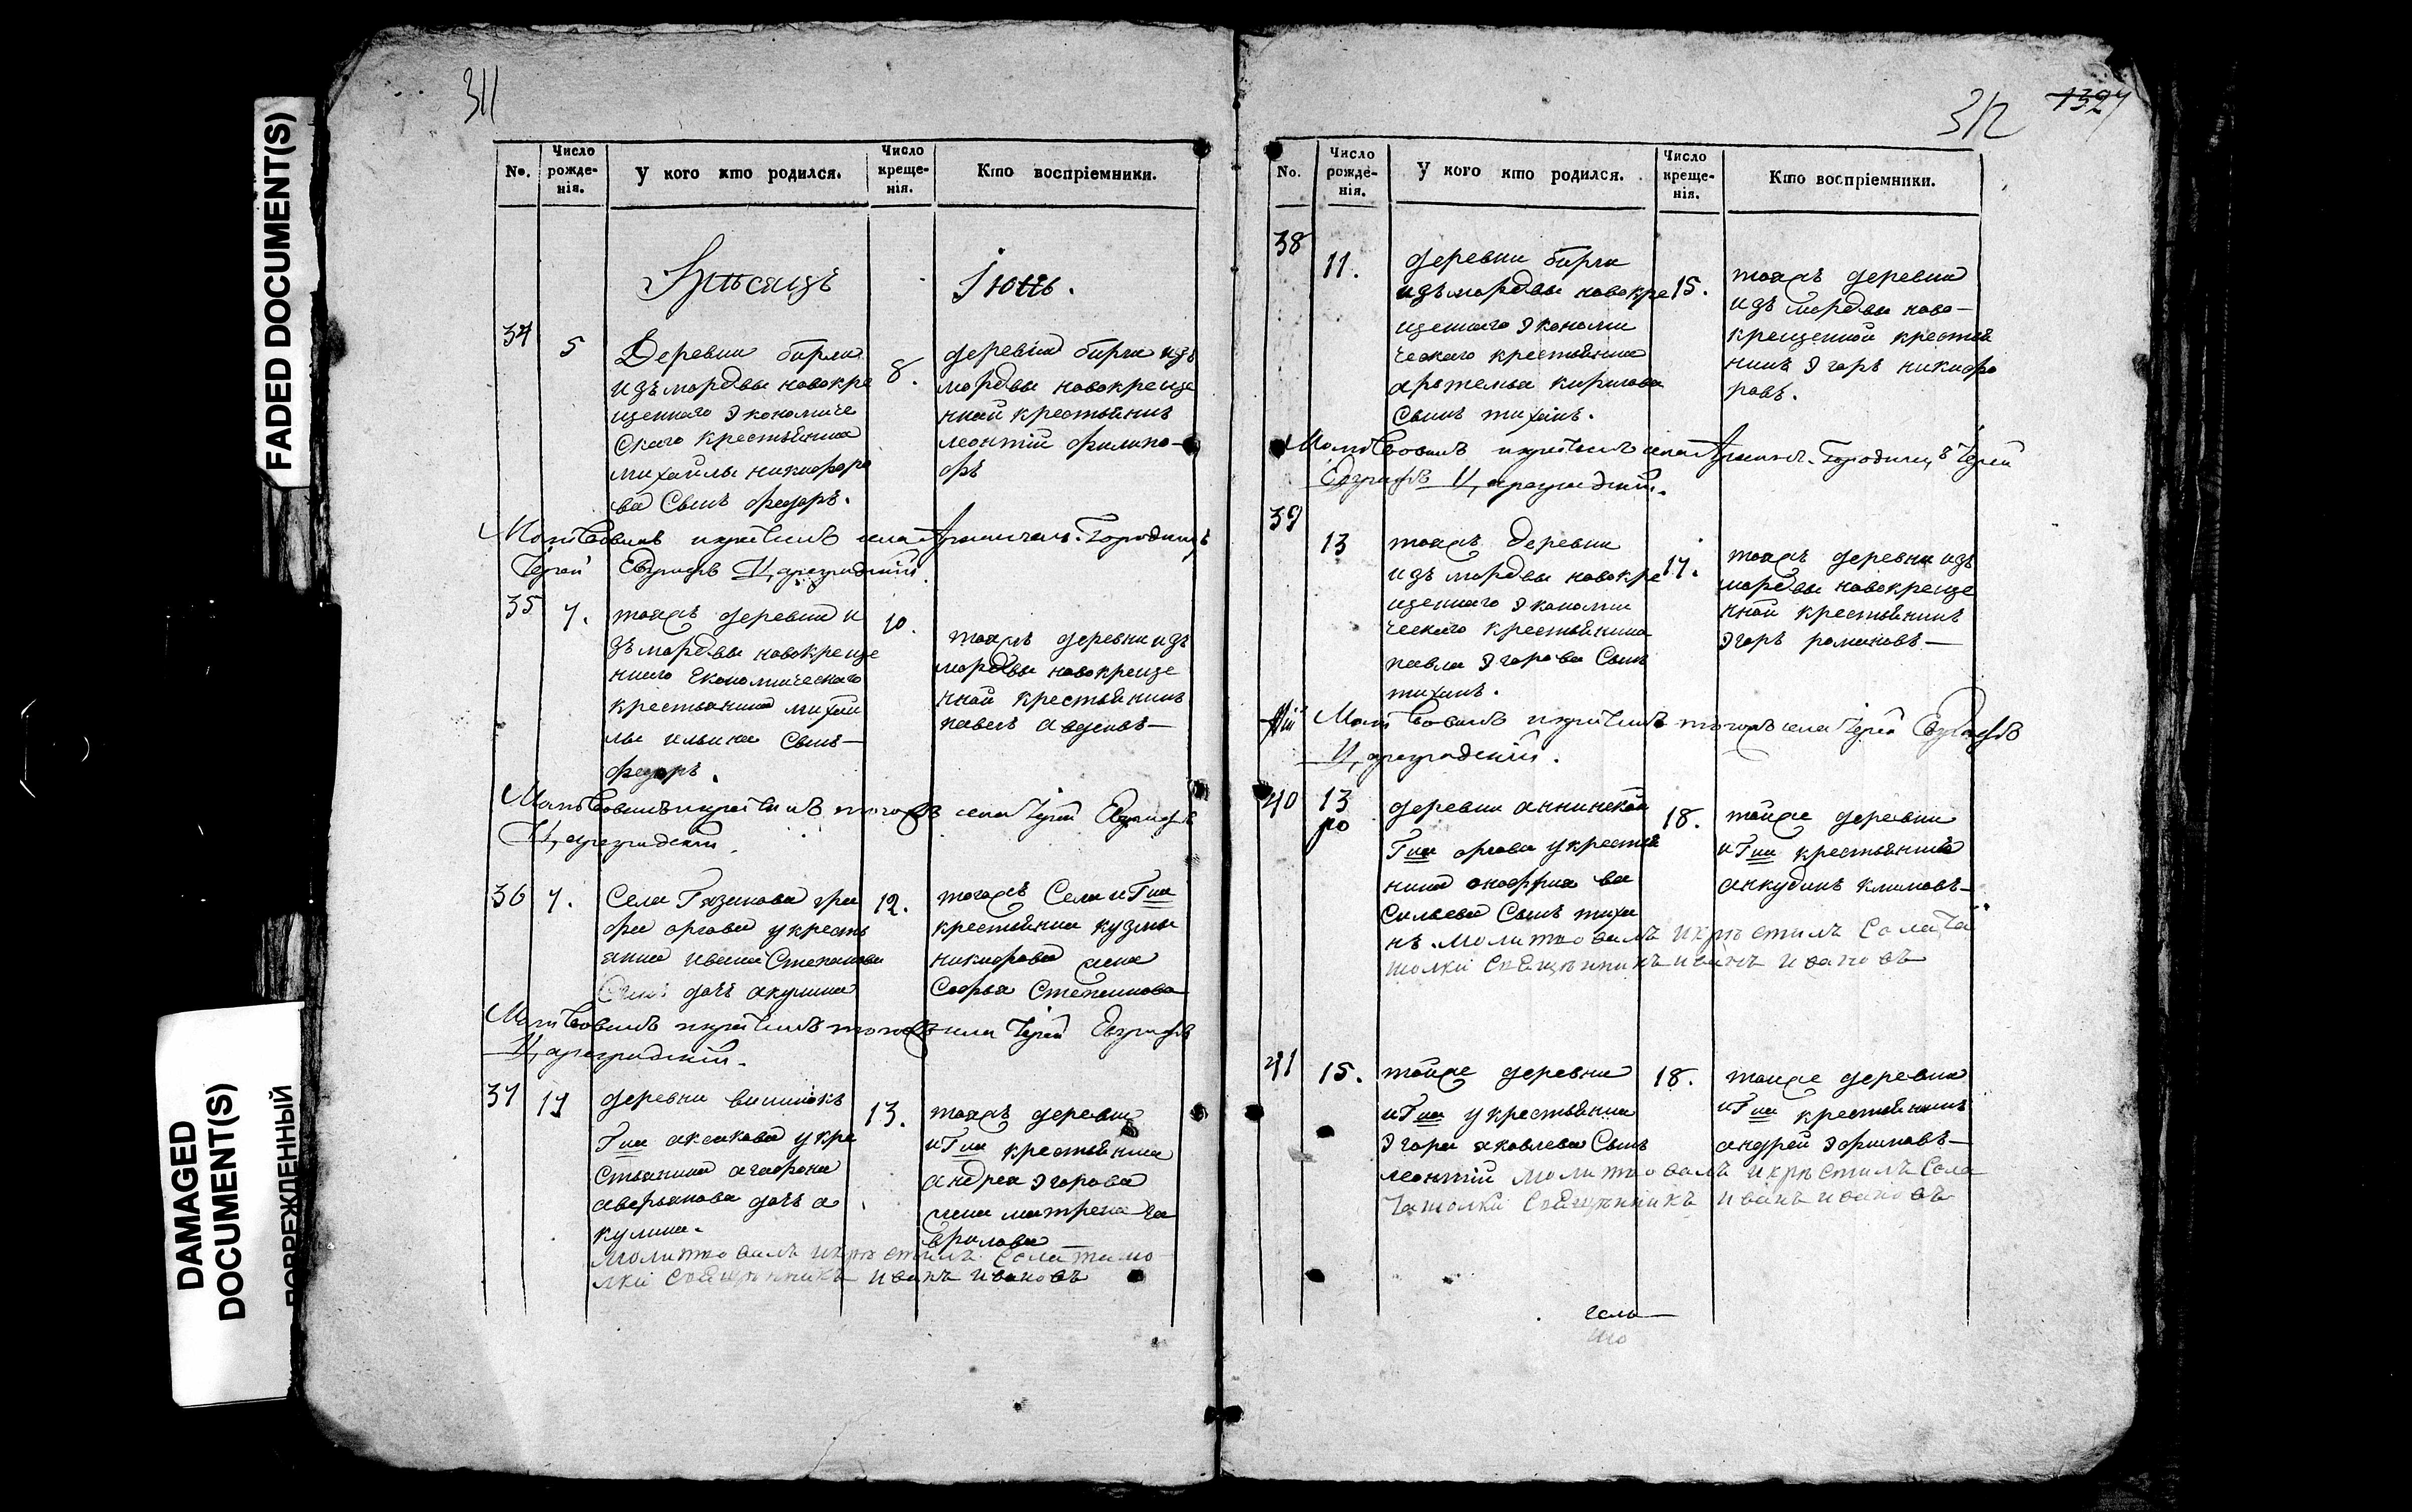 FADED DOCUMENT(S)
DAMAGED
DOCUMENT(S)
ПОВРЕЖДЕННЫЙ
311
No.
Число рожде-нія.
У кого кто родился.
Число креще-нія.
Кто воспріемники.
Мѣсяцъ
Іюнь.
34
5
Деревни бирли
изъ мордвы новокре
щеннаго экономиче
скаго крестьянина
михайлы никифоро
ва Сынъ федоръ.
8.
деревни бирли изъ
мордвы новокреще
нной крестьянинъ
леонтій филипо-
фъ
Молитвовалъ и крестилъ села Городищъ
Іерей Евграфъ Цареградскій.
35
7.
тояжъ деревни и
зъ мордвы новокреще
ннаго Економическаго
крестьянина михай
лы ильина Сынъ
федоръ.
10.
тояжъ деревни изъ
мордвы новокреще
нной крестьянинъ
павелъ авдеивъ
Молитвовалъ и крестилъ тогожъ села Іерей Евграфъ
Цареградскій.
36
7.
Села Рязанова гра
фа орлова у кресть
янина ивана Степанова
дочь акулина
12.
тогожъ Села и Гна
крестьянина кузмы
никифорова жена
Софья Степанова
Молитвовалъ и крестилъ тогожъ села Іерей Евграфъ
Цареградскій.
37
деревни
Гна аксакова у кре
стьянина агафона
аверьянова дочь а
кулина.
13.
тояжъ деревни
и Гна крестьянина
андрея Эгорова
жена матрена га
врилова
молитвовалъ и крѣстилъ Села
лки свещѣнникъ иванъ ивановъ
312
1324
No.
Число рожде-нія.
У кого кто родился.
Число креще-нія.
Кто воспріемники.
38
11.
деревни бирли
изъ мордвы новокре
щеннаго Экономи
ческаго крестьянина
артемья кирилова
Сынъ тихонъ.
15.
тояжъ деревни
изъ мордвы ново-
крещенной крестья
нинъ Эгоръ никифо
ровъ.
Молитвовалъ и крестилъ села Городищъ Іерей
Евграфъ Цареградскій.
39
13
тояжъ деревни
изъ мордвы новокре
щеннаго экономи
ческаго крестьянина
павла Эгорова Сынъ
тихонъ.
17.
тояжъ деревни изъ
мордвы новокреще
нной крестьянинъ
Эгоръ романовъ
Молитвовалъ и крестилъ тогожъ села Іерей Евграфъ
Цареградскій.
40
13
деревни аннинской
Гна орлова у крестья
нина онофрия ва
Сильева Сынъ тихо
нъ.
18.
тойже деревни
и Гна крестьянинъ
анкудинъ климовъ
молитвовалъ и крѣстилъ Села Ча
шолки свещѣнникъ иванъ ивановъ
41
15.
тойже деревни
и Гна у крестьянина
Эгора яковлева Сынъ
леонтій
18.
тойже деревни
и Гна крестьянинъ
андрей Эфимовъ
молитвовалъ и крѣстилъ Села
Чашолки свещѣнникъ иванъ ивановъ